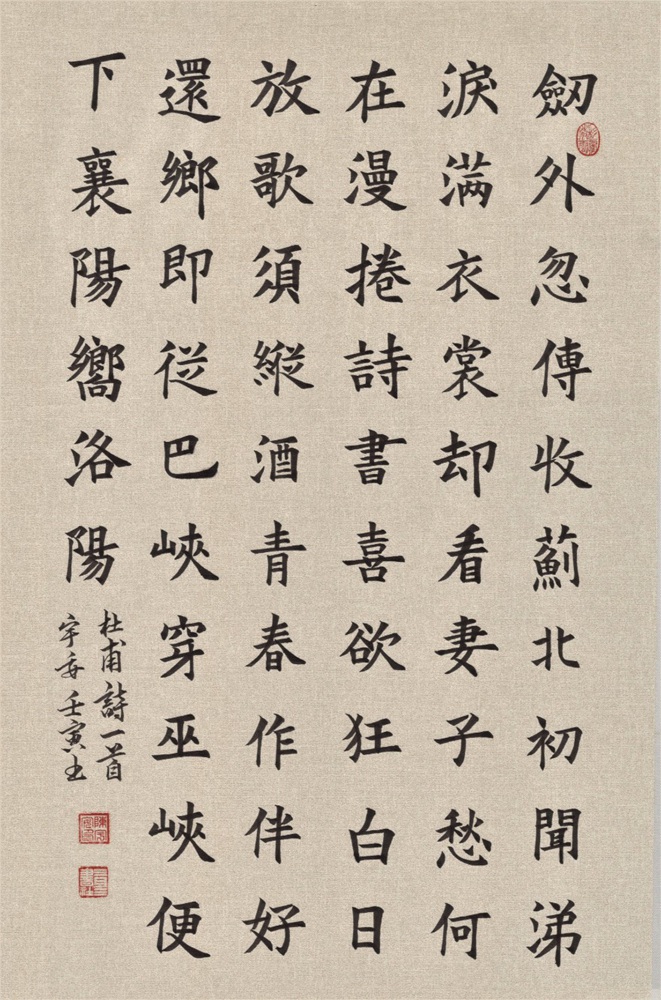 劒外忽傳收薊北初聞涕
淚満衣裳却看妻子愁何
在漫捲詩書喜欲狂白日
放歌須縦酒青春作伴好
還鄉即従巴峽穿巫峽便
下襄陽嚮洛陽
杜甫詩一首
壬寅